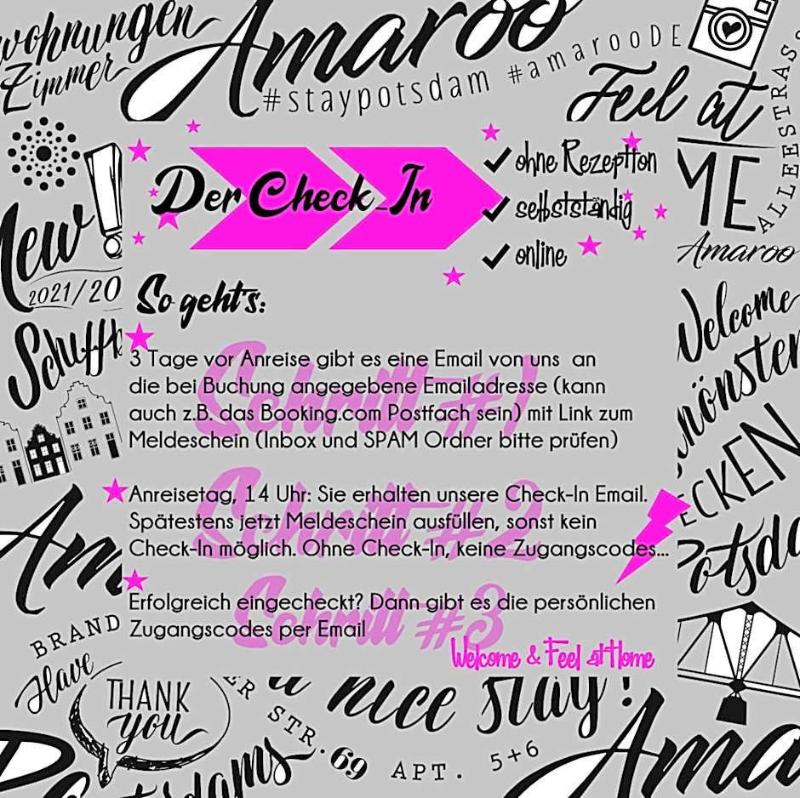 wohnungen
Zimmer
Amaroo
#staypotsdam #amarooDE
Feel at
ALLEESTRAS
ME
Amaroo
New!
2021/20
Der Check_In
ohne Rezeption
selbstständig
online
So geht's:
Welcome
Schiffb
Schritt #1
3 Tage vor Anreise gibt es eine Email von uns an
die bei Buchung angegebene Emailadresse (kann
auch z.B. das Booking.com Postfach sein) mit Link zum
Meldeschein (Inbox und SPAM Ordner bitte prüfen)
önsten
ECKEN
Schritt #2
Anreisetag, 14 Uhr: Sie erhalten unsere Check-In Email.
Spätestens jetzt Meldeschein ausfüllen, sonst kein
Check-In möglich. Ohne Check-In, keine Zugangscodes...
Am
Potsda
Schritt #3
Erfolgreich eingecheckt? Dann gibt es die persönlichen
Zugangscodes per Email
Welcome & Feel at Home
BRAND
Have
THANK
you
a nice stay!
ER STR. 69 APT. 5+6
Potsdams
Ama